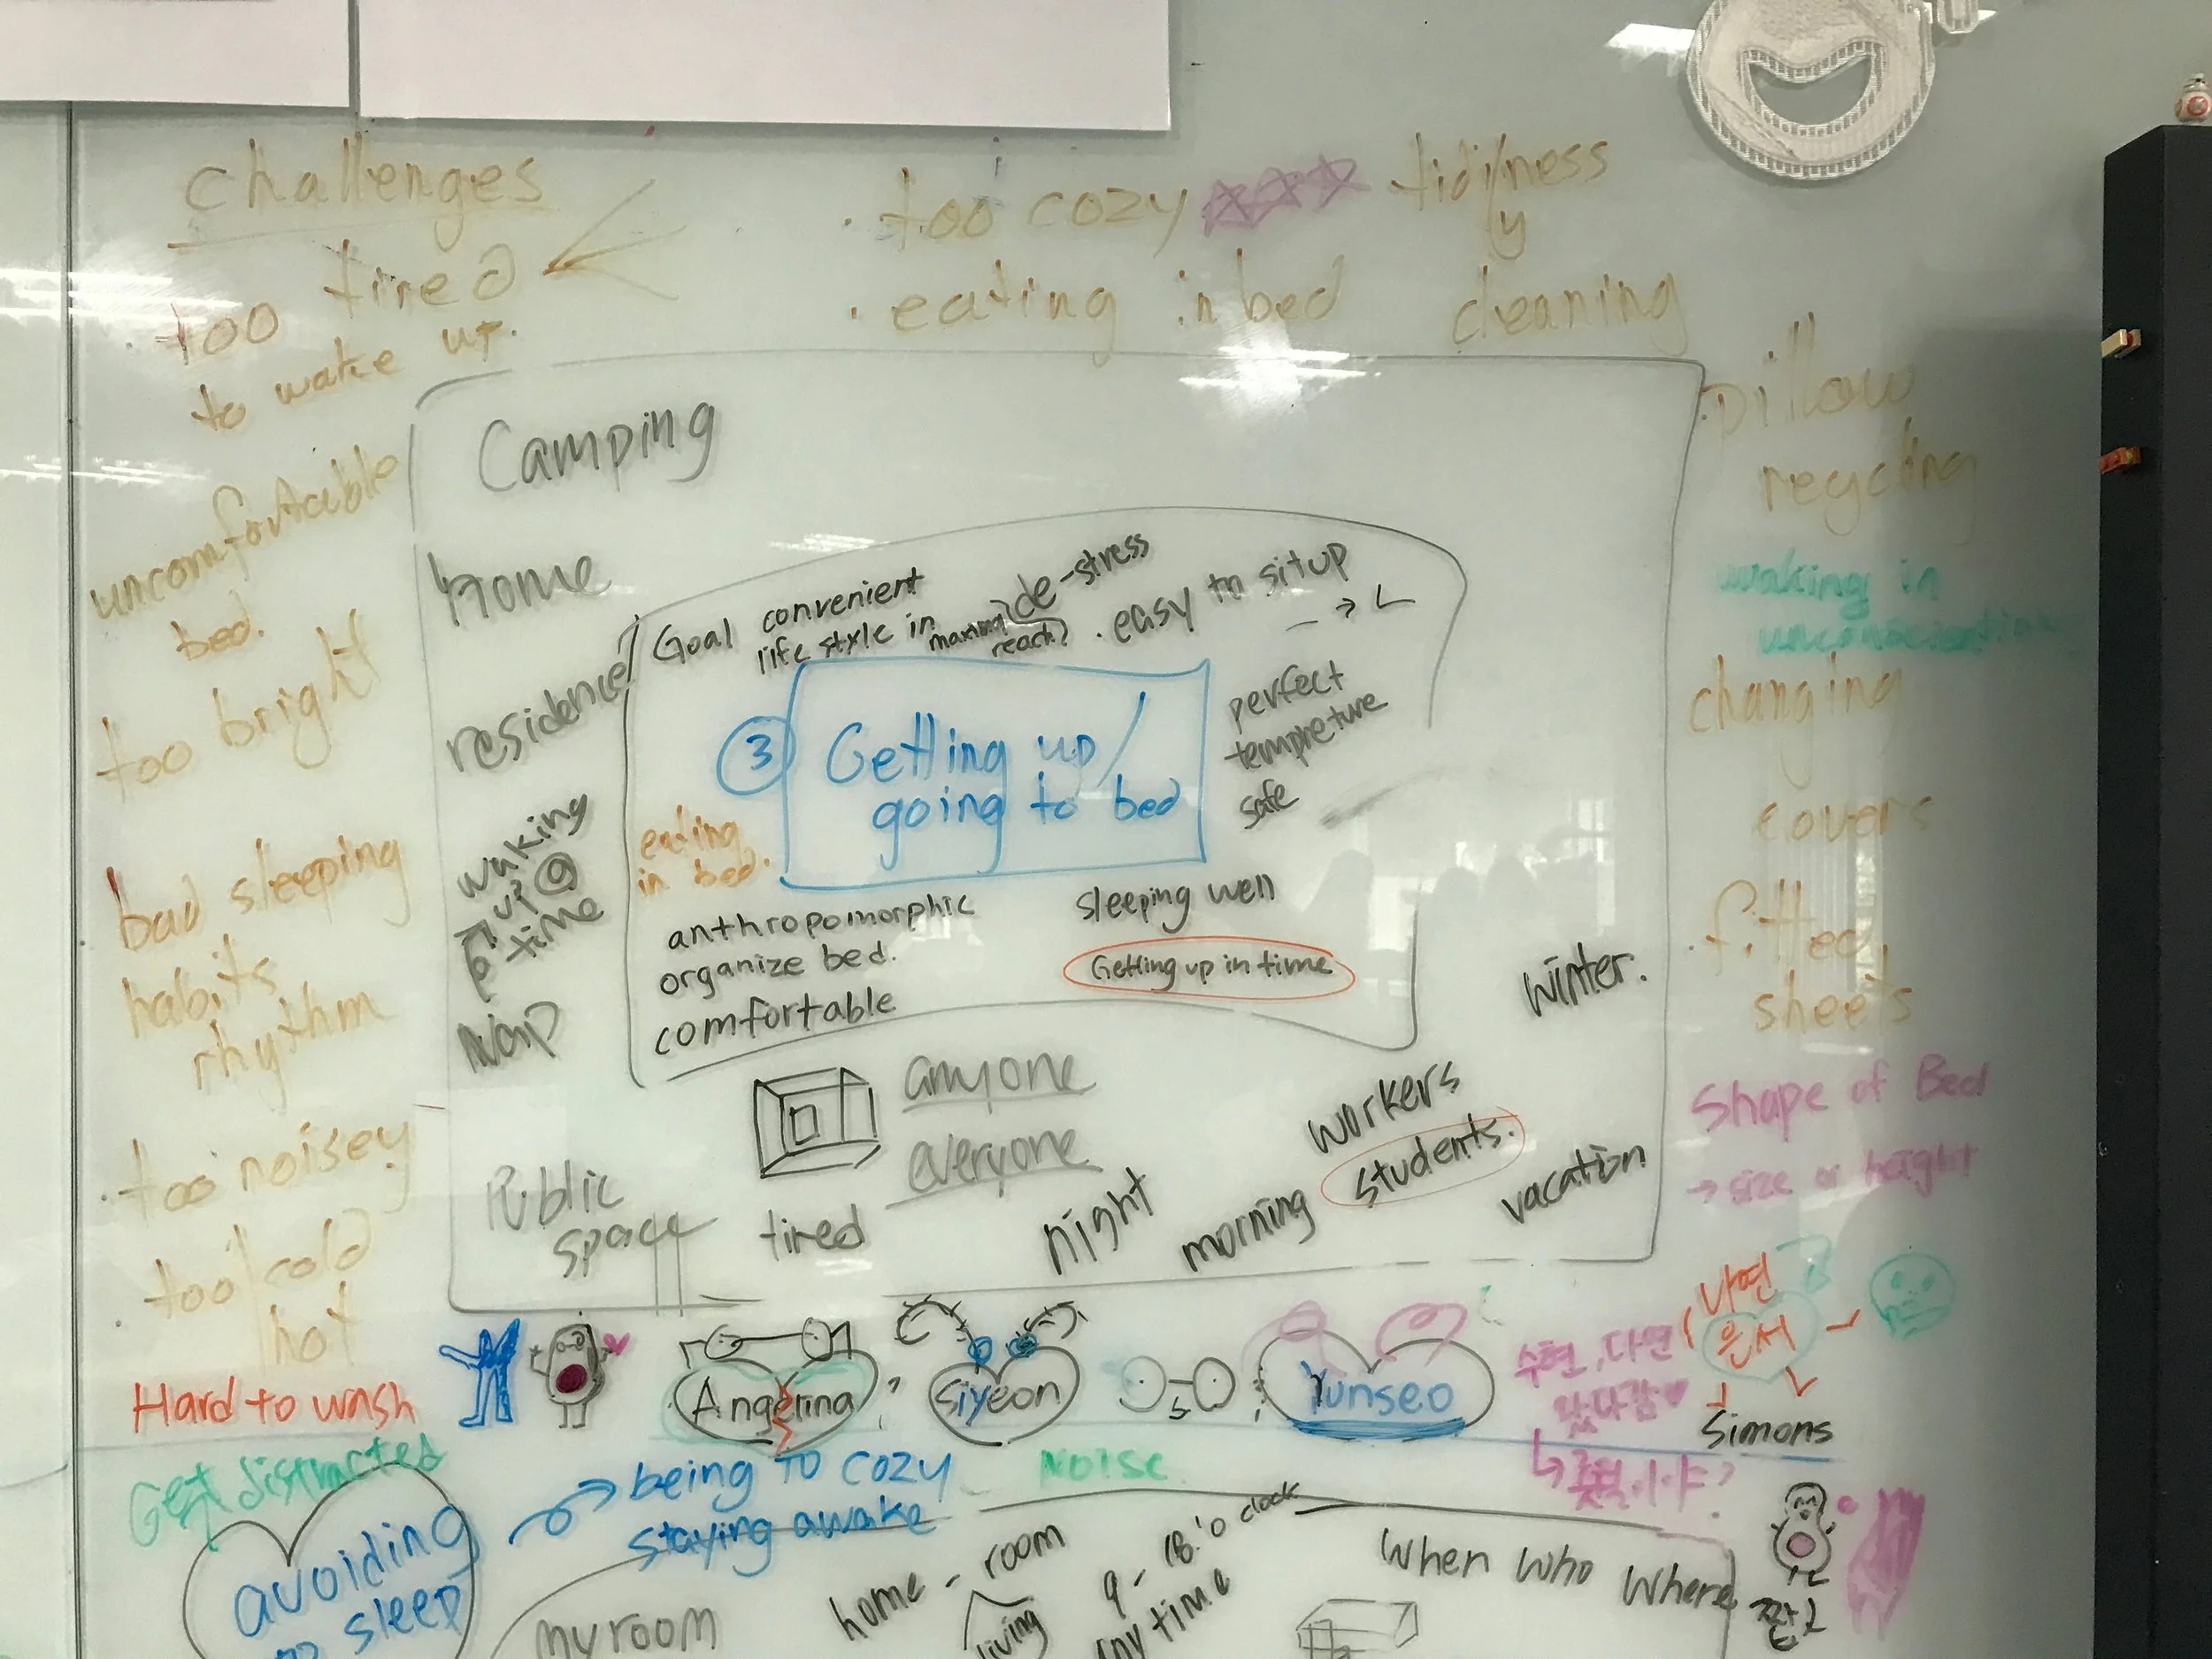 challenges
· too tired
to wake up.
uncomfortable
bed.
too bright
bad sleeping
habits
rhythm
· too noisey
· too cold
hot
Hard to wash
Get distracted
· too cozy
tidi/yness
· eating in bed
cleaning
pillow
recycling
waking in
changing
covers
· fitted
sheets
Shape of Bed
→ size or height
Camping
home
residence
waking
up @
time
Nap
Public
space
Goal
convenient
life style in
reach?
de-stress
· easy to sit up
→
perfect
tempreture
safe
③ Getting up/
going to bed
eating
in bed.
anthropomorphic
organize bed.
comfortable
sleeping well
Getting up in time
anyone
everyone
tired
night
morning
workers
students.
vacation
winter.
Angelina
?
Siyeon
Yunseo
수현, 다연
나연
은서
Simons
avoiding
to sleep
being TO COZY
staying awake
NOISE
my room
home - room
living
9 - 18:'o clock
Any time
When Who Where